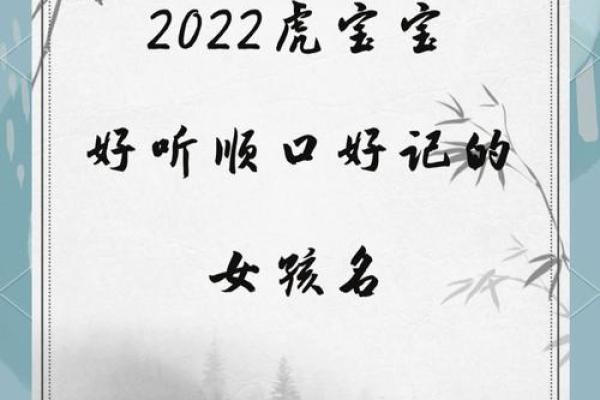 2022虎宝宝
好听顺口好记的
女孩名